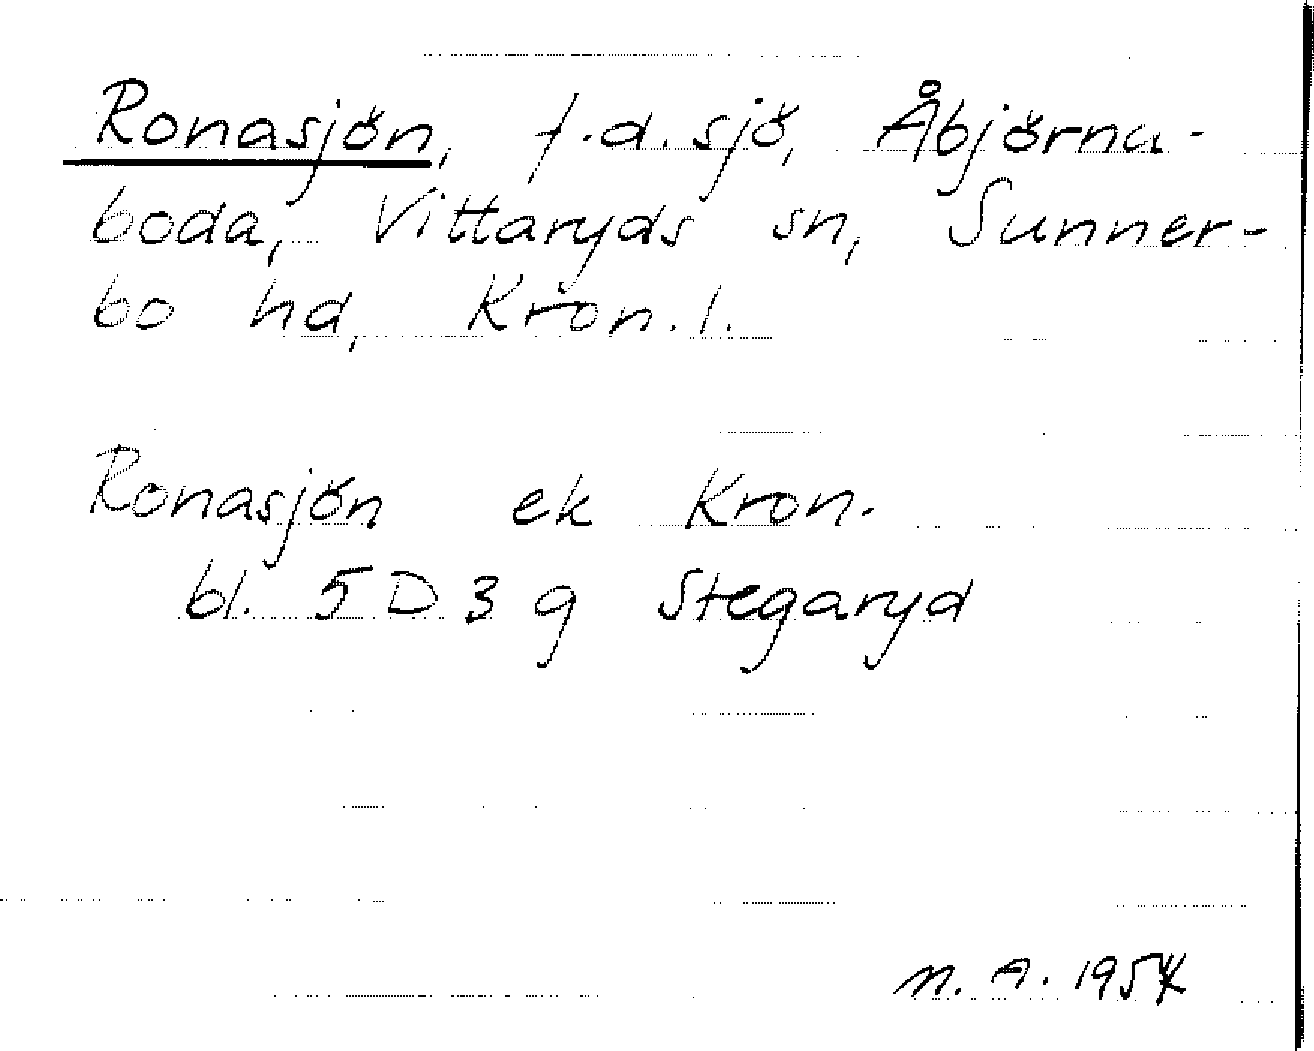 Ronasjön, f.d. sjö, Åbjörna-
boda, Vittaryds sn, Sunner-
bo hd, Kron. l.
Ronasjön ek Kron.
bl. 5 D 3 g Stegaryd
M. A. 1954